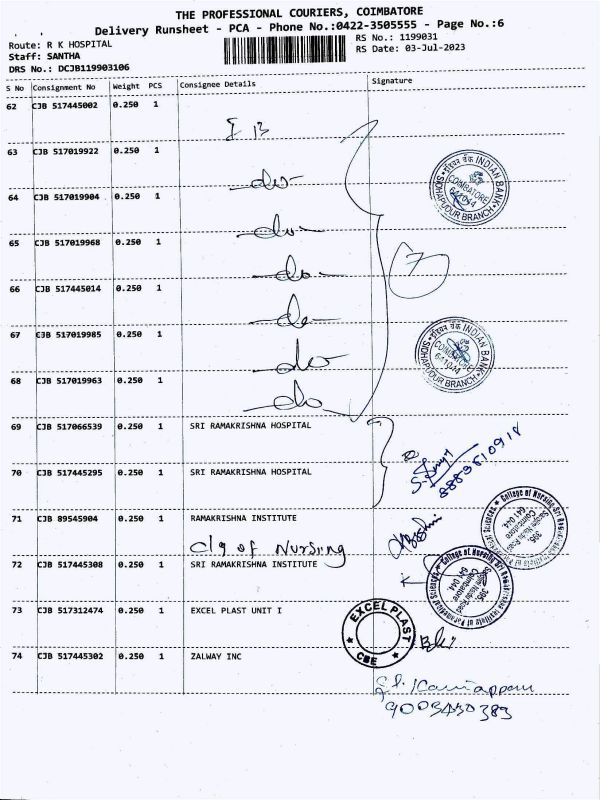 THE PROFESSIONAL COURIERS, COIMBATORE
Delivery Runsheet - PCA - Phone No.:0422-3505555 - Page No.:6
Route: R K HOSPITAL
Staff: SANTHA
DRS No.: DCJB119903106
RS No.: 1199031
RS Date: 03-Jul-2023
S No Consignment No Weight PCS Consignee Details Signature
62 CJB 517445002 0.250 1
I B
63 CJB 517019922 0.250 1
do
64 CJB 517019904 0.250 1
do
65 CJB 517019968 0.250 1
do
66 CJB 517445014 0.250 1
do
67 CJB 517019985 0.250 1
do
68 CJB 517019963 0.250 1
do
7
इंडियन बैंक INDIAN BANK
COIMBATORE
641044
SIDHAPUDUR BRANCH
इंडियन बैंक INDIAN BANK
COIMBATORE
641044
SIDHAPUDUR BRANCH
69 CJB 517066539 0.250 1 SRI RAMAKRISHNA HOSPITAL
70 CJB 517445295 0.250 1 SRI RAMAKRISHNA HOSPITAL
71 CJB 89545904 0.250 1 RAMAKRISHNA INSTITUTE
Clg of Nursing
72 CJB 517445308 0.250 1 SRI RAMAKRISHNA INSTITUTE
College of Nursing-Sri Ramakrishna Institute of Paramedical Sciences
395,
Sarojini Naidu Road
Coimbatore
641 044.
College of Nursing-Sri Ramakrishna Institute of Paramedical Sciences
395,
Sarojini Naidu Road
Coimbatore
641 044.
73 CJB 517312474 0.250 1 EXCEL PLAST UNIT I
EXCEL PLAST
CBE
74 CJB 517445302 0.250 1 ZALWAY INC